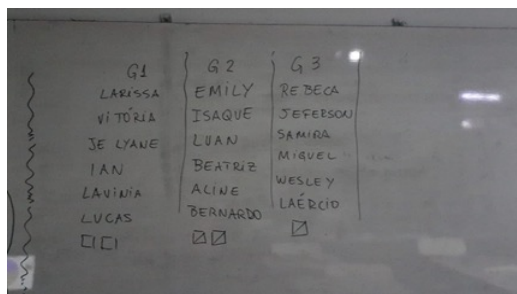 G1
LARISSA
VITÓRIA
JELYANE
IAN
LAVINIA
LUCAS
G2
EMILY
ISAQUE
LUAN
BEATRIZ
ALINE
BERNARDO
G3
REBECA
JEFERSON
SAMIRA
MIGUEL
WESLEY
LAÉRCIO